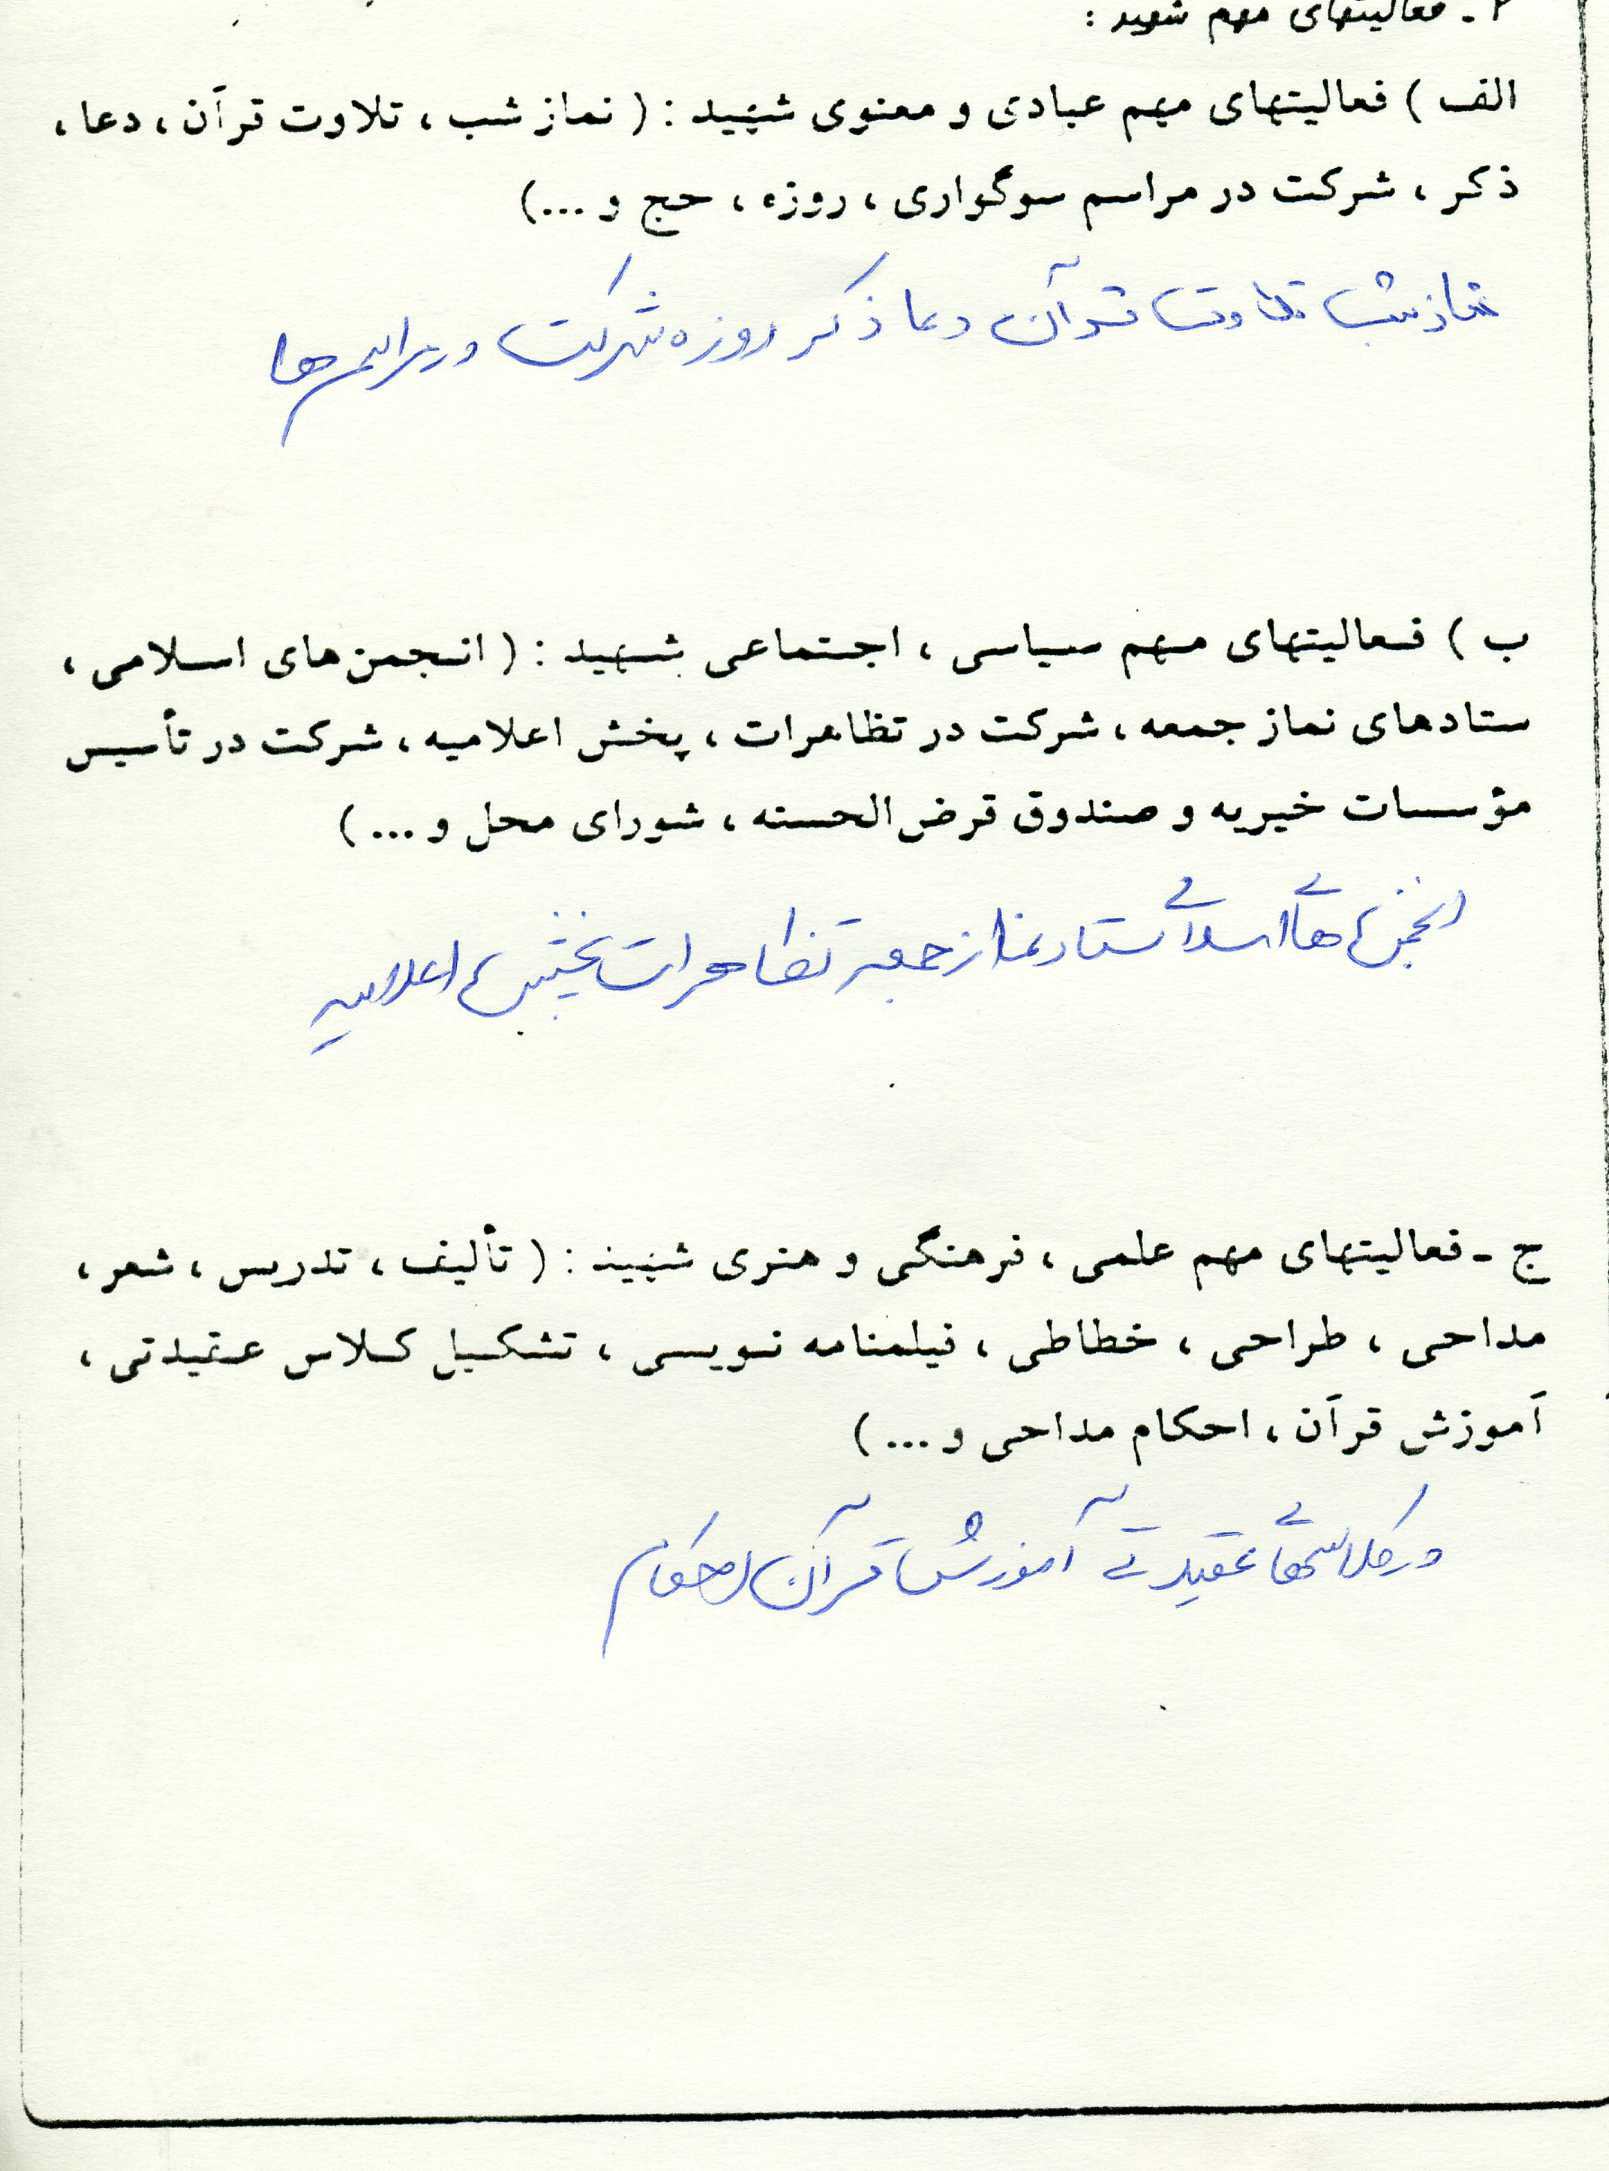 ۲ - فعالیتهای مهم شهید :
الف ) فعالیتهای مهم عبادی و معنوی شهید : ( نماز شب ، تلاوت قرآن ، دعا ،
ذکر ، شرکت در مراسم سوگواری ، روزه ، حج و ...)
نماز شب تلاوت قرآن دعا ذکر روزه شرکت در مراسم ها
ب ) فعالیتهای مهم سیاسی ، اجتماعی شهید : ( انجمن‌های اسلامی ،
ستادهای نماز جمعه ، شرکت در تظاهرات ، پخش اعلامیه ، شرکت در تأسیس
مؤسسات خیریه و صندوق قرض‌الحسنه ، شورای محل و ... )
انجمن های اسلامی ستاد نماز جمعه تظاهرات پخش اعلامیه
ج - فعالیتهای مهم علمی ، فرهنگی و هنری شهید : ( تألیف ، تدریس ، شعر ،
مداحی ، طراحی ، خطاطی ، فیلمنامه نویسی ، تشکیل کلاس عقیدتی ،
آموزش قرآن ، احکام مداحی و ... )
در کلاسهای عقیدتی آموزش قرآن احکام